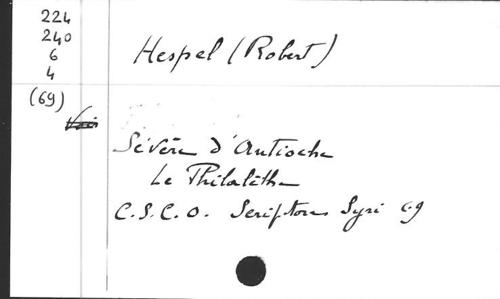 224
240
6
4
(69)
Hespel (Robert)
Voir
Sévère d'Antioche
Le Philalèthe
C.S.C.O. Scriptores Syri 69